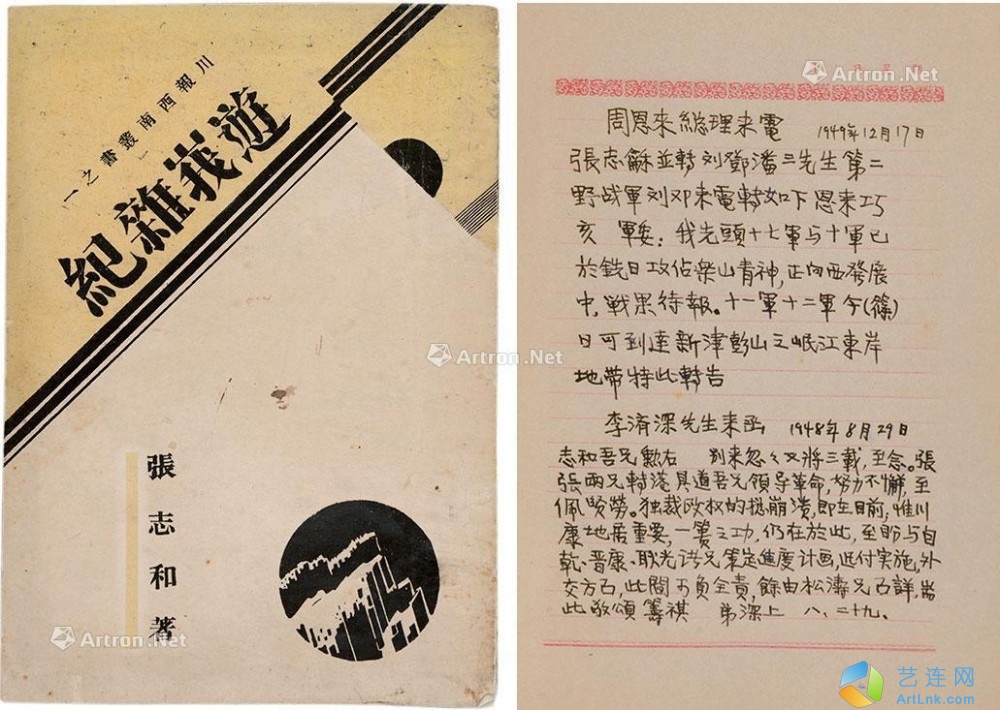 川報西南叢書之一
遊峩雜紀
張志和著
周恩来總理来電 1949年12月17日
張志龢並轉刘鄧潘三先生第二
野战軍刘邓来電轉如下恩来巧
亥 軍委：我先頭十七軍与十軍已
於銑日攻佔樂山青神，正向西發展
中，战果待報。十一軍十二軍今(篠)
日可到達新津彭山之岷江東岸
地带特此轉告
李濟深先生来函 1948年8月29日
志和吾兄勳右 别来忽々又將三載，至念。張
張兩兄轉港具道吾兄領导革命，努力不懈，至
佩賢勞。独裁政权的总崩溃，即在目前，惟川
康地居重要，一簣之功，仍在於此，至盼与自
乾、晋康、耿光诸兄策定進度计画，迅付实施，外
交方面，此間可負全責，餘由松濤兄面詳，耑
此敬頌籌祺 弟深上 八、二十九、
Artron.Net
Artron.Net
Artron.Net
Artron.Net
艺连网
ArtLnk.com